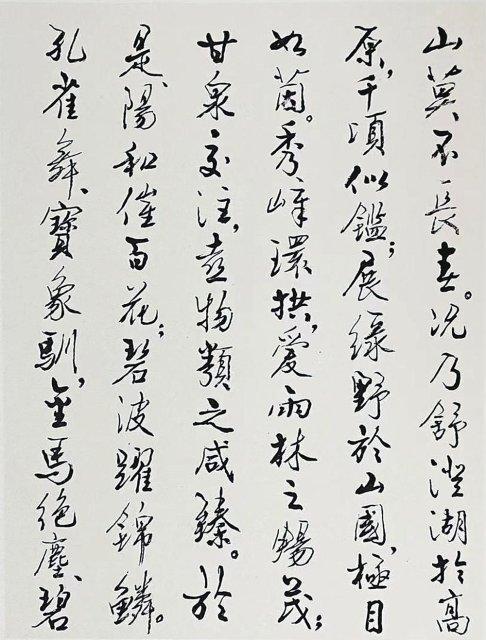 山莫不長春。况乃舒澄湖於高
原，千頃似鑑；展緑野於山國，極目
如茵。秀峰環拱，愛雨林之暢茂；
甘泉交注，喜物類之咸臻。於
是，陽和催百花；碧波躍錦鱗。
孔雀舞、寶象馴，金馬絶塵、碧